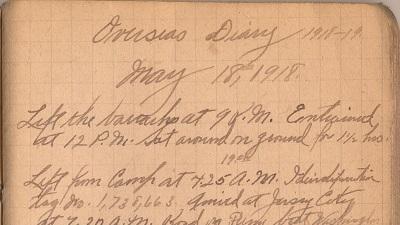 Overseas Diary 1918-19.
May 18, 1918.
Left the barracks at 9 P.M. Entrained
at 12 P.M. Sat around on ground for 1½ hrs.
19th
Left from Camp at 4.25 A.M. Identification
tag No. 1,735,663. Arrived at Jersey City
at 7.20 A.M. Road on Ferry boat Washington